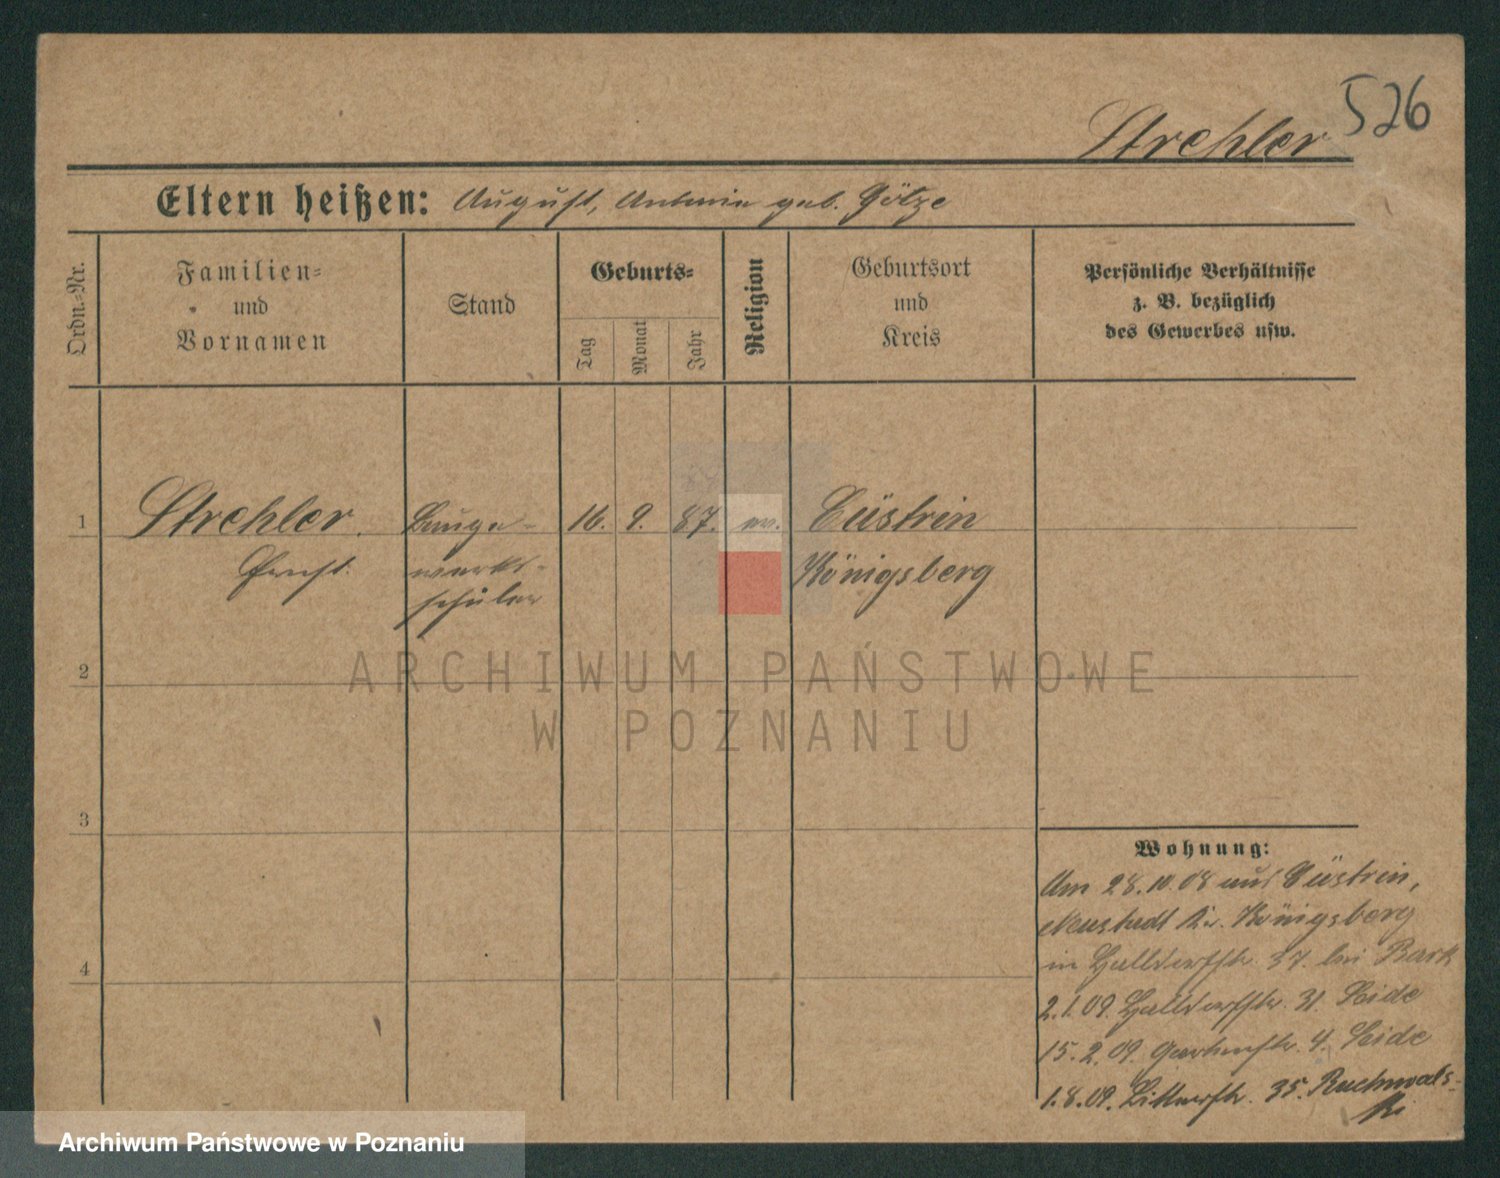 526
Strehler
Eltern heißen: August, Antonie geb. Götze
Ordn.=Nr.
Familien=
und
Vornamen
Stand
Geburts=
Tag
Monat
Jahr
Religion
Geburtsort
und
Kreis
Persönliche Verhältnisse
z. B. bezüglich
des Gewerbes usw.
1
Strehler.
Ernst.
Bauge-
werks-
schüler
16. 9. 87. ev.
Cüstrin
Königsberg
2
3
4
Wohnung:
Am 28.10.08 aus Cüstrin,
Neustadt Kr. Königsberg
in Halldorfstr. 37. bei Bark
2.1.09. Halldorfstr. 31. Seide
15.2.09. Gartenstr. 4. Seide
1.8.09. Bittnerstr. 35. Ruchwals-
ki
ARCHIWUM PAŃSTWOWE
W POZNANIU
Archiwum Państwowe w Poznaniu